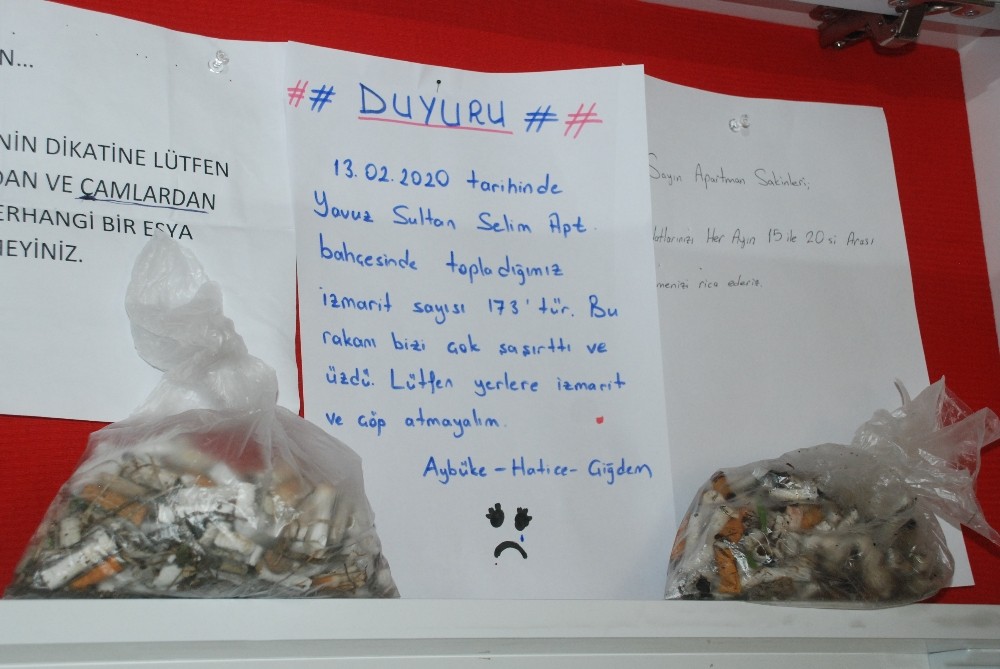 N...
NİN DİKATİNE LÜTFEN
DAN VE ÇAMLARDAN
ERHANGİ BİR EŞYA
MEYİNİZ.
## DUYURU ##
13.02.2020 tarihinde
Yavuz Sultan Selim Apt.
bahçesinde topladığımız
izmarit sayısı 173'tür. Bu
rakam bizi çok şaşırttı ve
üzdü. Lütfen yerlere izmarit
ve çöp atmayalım.
Aybüke - Hatice - Çiğdem
Sayın Apartman Sakinleri;
Her Ayın 15 ile 20 si Arası
menizi rica ederiz.